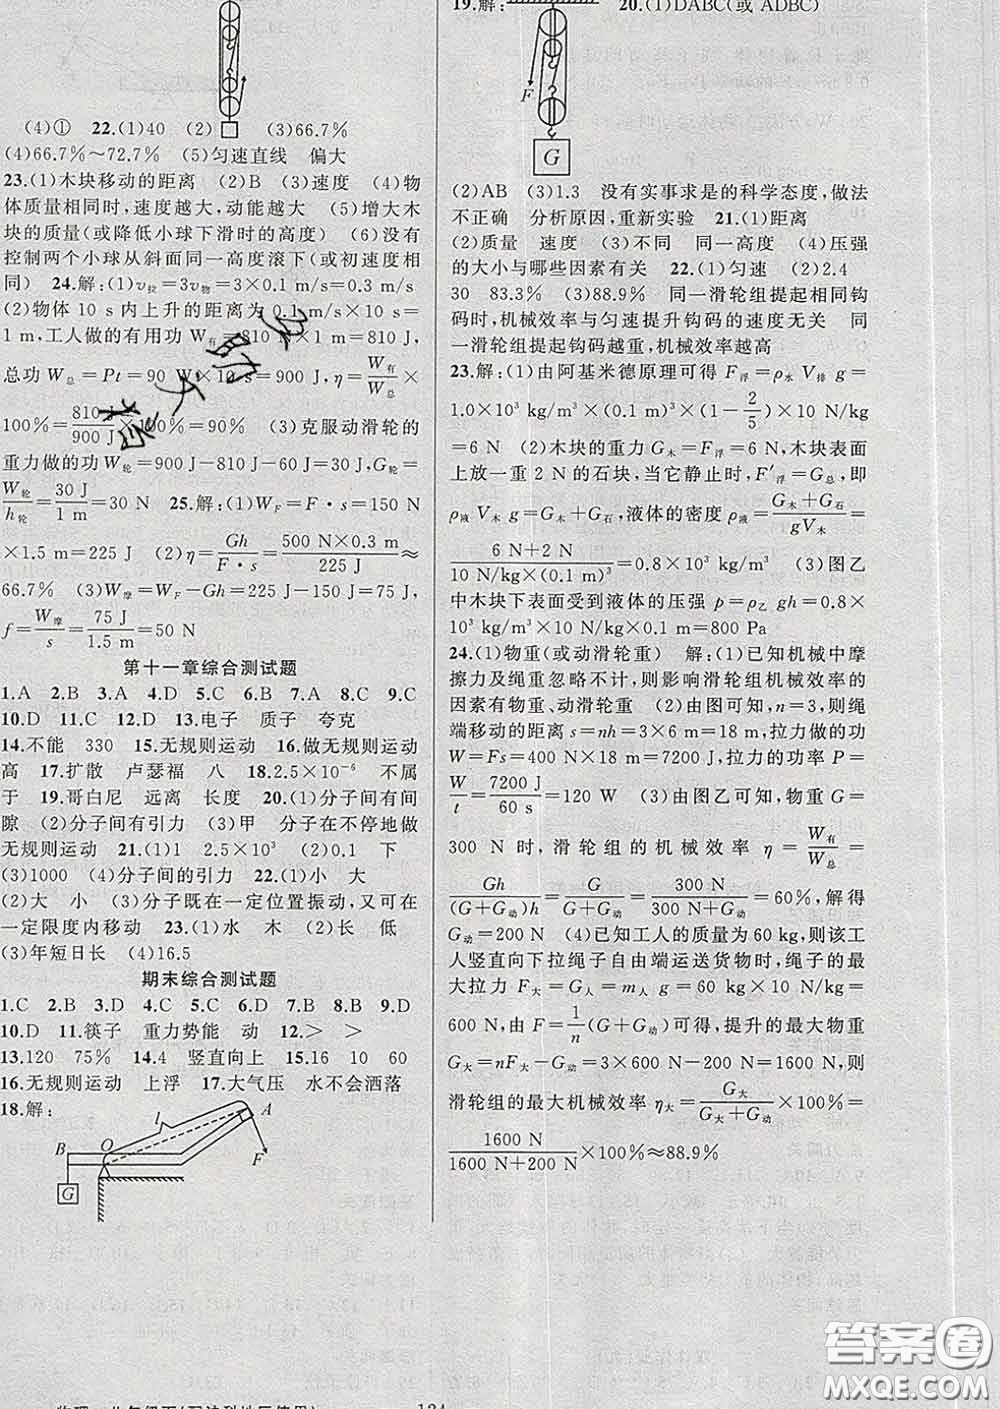 (4)① 22.(1)40 (2) (3)66.7%
(4)66.7%～72.7% (5)匀速直线 偏大
23.(1)木块移动的距离 (2)B (3)速度 (4)物
体质量相同时,速度越大,动能越大 (5)增大木
块的质量(或降低小球下滑时的高度) (6)没有
控制两个小球从斜面同一高度滚下(或初速度相
同) 24.解:(1)v拉=3v物=3×0.1 m/s=0.3 m/s
(2)物体 10 s内上升的距离为 0.1 m/s×10 s=
1 m,工人做的有用功 W有=810 N×1 m=810 J,
总功 W总=Pt=90 W×10 s=900 J,η=W有/W总×
100%=810 J/900 J×100%=90% (3)克服动滑轮的
重力做的功 W轮=900 J-810 J-60 J=30 J,G轮=
W轮/h轮=30 J/1 m=30 N 25.解:(1)WF=F·s=150 N
×1.5 m=225 J (2)η=Gh/F·s=500 N×0.3 m/225 J≈
66.7% (3)W摩=WF-Gh=225 J-150 J=75 J,
f=W摩/s=75 J/1.5 m=50 N
第十一章综合测试题
1.A 2.B 3.A 4.D 5.C 6.B 7.A 8.C 9.C
10.D 11.C 12.D 13.电子 质子 夸克
14.不能 330 15.无规则运动 16.做无规则运动
高 17.扩散 卢瑟福 八 18.2.5×10⁻⁶ 不属
于 19.哥白尼 远离 长度 20.(1)分子间有间
隙 (2)分子间有引力 (3)甲 分子在不停地做
无规则运动 21.(1)1 2.5×10³ (2)0.1 下
(3)1000 (4)分子间的引力 22.(1)小 大
(2)大 小 (3)分子既在一定位置振动,又可在
一定限度内移动 23.(1)水 木 (2)长 低
(3)年短日长 (4)16.5
期末综合测试题
1.C 2.B 3.D 4.D 5.C 6.C 7.B 8.B 9.D
10.D 11.筷子 重力势能 动 12.＞ ＞
13.120 75% 14.4 竖直向上 15.16 10 60
16.无规则运动 上浮 17.大气压 水不会洒落
18.解:
l A
B O
F
G
19.解: 20.(1)DABC(或 ADBC)
F
G
(2)AB (3)1.3 没有实事求是的科学态度,做法
不正确 分析原因,重新实验 21.(1)距离
(2)质量 速度 (3)不同 同一高度 (4)压强
的大小与哪些因素有关 22.(1)匀速 (2)2.4
30 83.3% (3)88.9% 同一滑轮组提起相同钩
码时,机械效率与匀速提升钩码的速度无关 同
一滑轮组提起钩码越重,机械效率越高
23.解:(1)由阿基米德原理可得 F浮=ρ水 V排 g=
1.0×10³ kg/m³×(0.1 m)³×(1-2/5)×10 N/kg
=6 N (2)木块的重力 G木=F浮=6 N,木块表面
上放一重 2 N 的石块,当它静止时,F′浮=G总,即
ρ液 V木 g=G木+G石,液体的密度 ρ液=G木+G石/gV木=
6 N+2 N/10 N/kg×(0.1 m)³=0.8×10³ kg/m³ (3)图乙
中木块下表面受到液体的压强 p=ρ乙 gh=0.8×
10³ kg/m³×10 N/kg×0.1 m=800 Pa
24.(1)物重(或动滑轮重) 解:(1)已知机械中摩
擦力及绳重忽略不计,则影响滑轮组机械效率的
因素有物重、动滑轮重 (2)由图可知,n=3,则绳
端移动的距离 s=nh=3×6 m=18 m,拉力做的功
W=Fs=400 N×18 m=7200 J,拉力的功率 P=
W/t=7200 J/60 s=120 W (3)由图乙可知,物重 G=
300 N 时,滑轮组的机械效率 η=W有/W总=
Gh/(G+G动)h=G/G+G动=300 N/300 N+G动=60%,解得
G动=200 N (4)已知工人的质量为 60 kg,则该工
人竖直向下拉绳子自由端运送货物时,绳子的最
大拉力 F大=G人=m人 g=60 kg×10 N/kg=
600 N,由 F=1/n(G+G动)可得,提升的最大物重
G大=nF大-G动=3×600 N-200 N=1600 N,则
滑轮组的最大机械效率 η大=G大/G大+G动×100%=
1600 N/1600 N+200 N×100%≈88.9%
答案圈
MXQE.COM